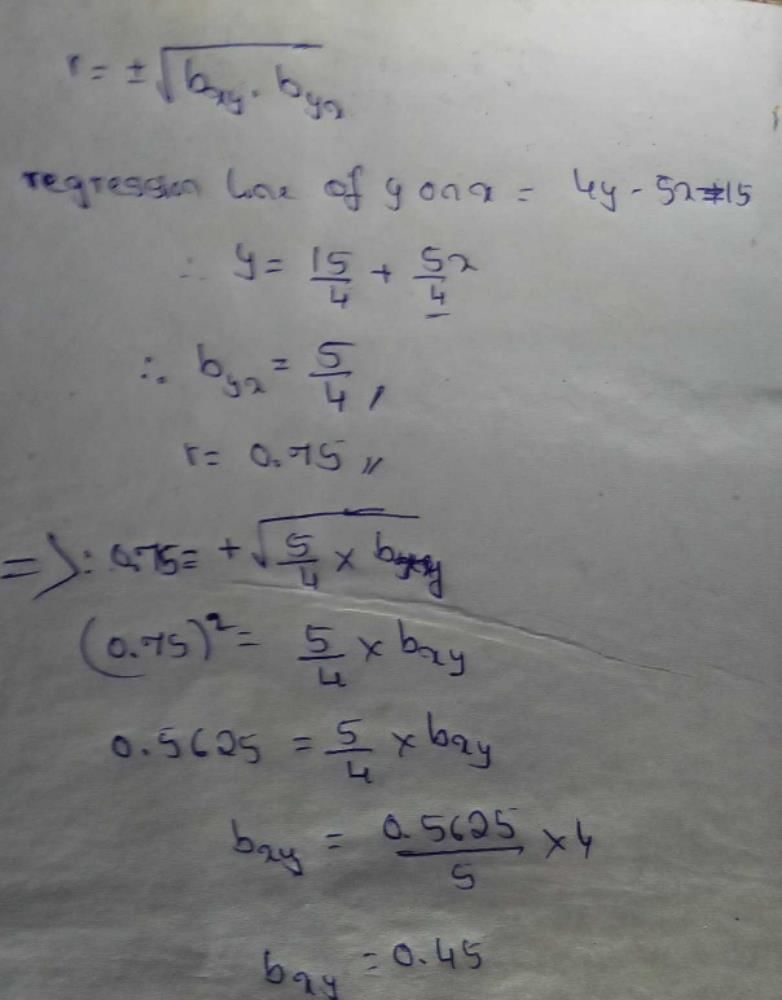 r = ± √(bxy . byx)
regression line of y on x = 4y - 5x = 15
∴ y = 15/4 + 5x/4
∴ byx = 5/4,
r = 0.75 //
=> : 0.75 = + √(5/4 × bxy)
(0.75)² = 5/4 × bxy
0.5625 = 5/4 × bxy
bxy = 0.5625/5 × 4
bxy = 0.45